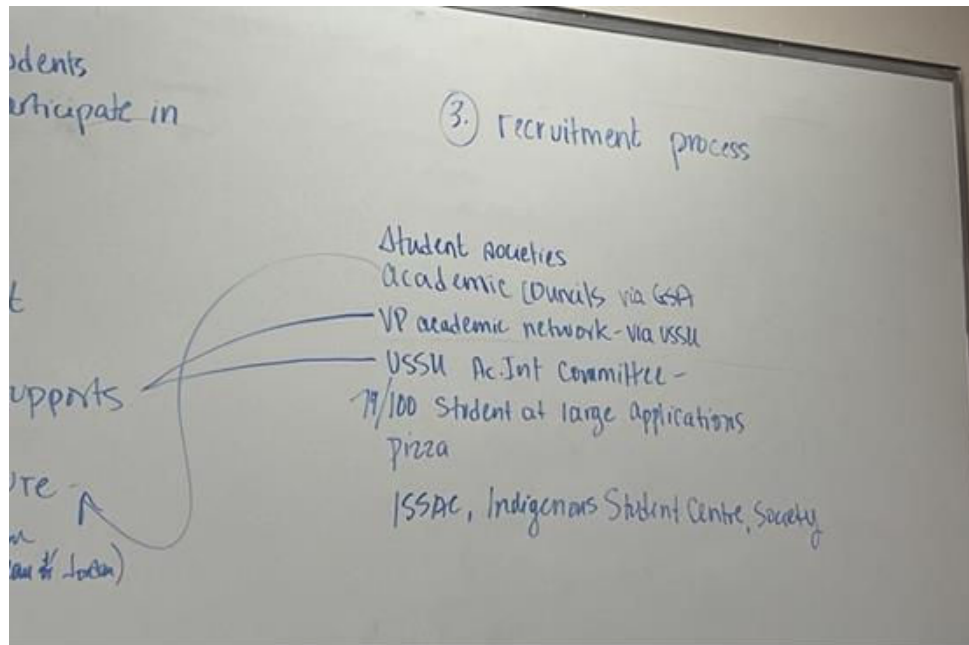 udents
articipate in
3. recruitment process
Student societies
academic councils via GSA
VP academic network - via USSU
USSU Ac. Int Committee -
79/100 Student at large applications
pizza
ISSAC, Indigenous Student Centre, Society
t
upports
ure -